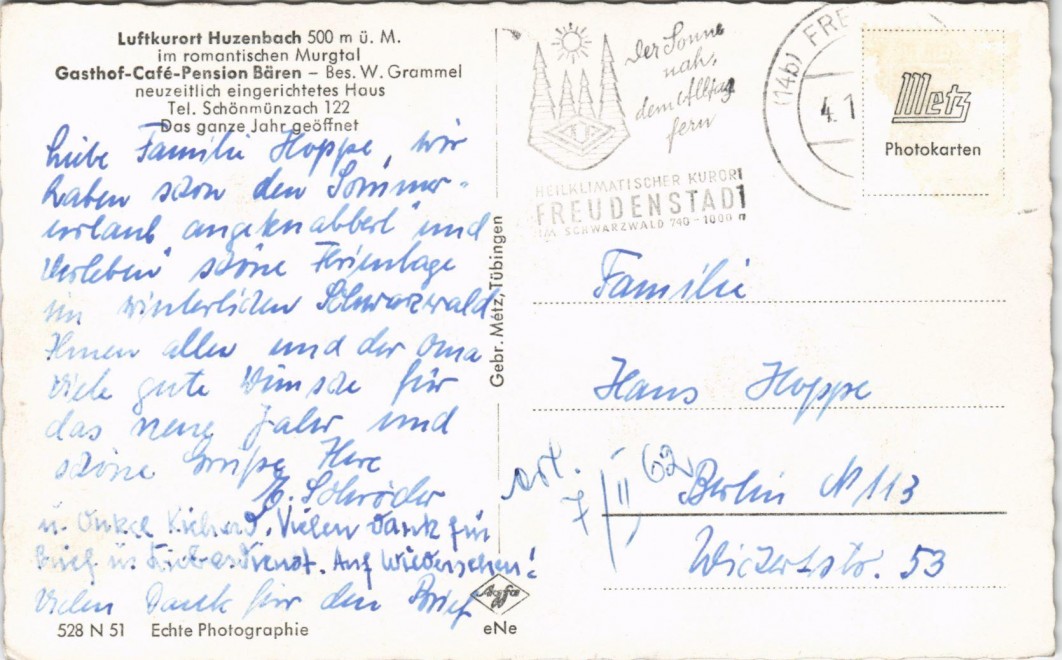 Luftkurort Huzenbach 500 m ü. M.
im romantischen Murgtal
Gasthof-Café-Pension Bären – Bes. W. Grammel
neuzeitlich eingerichtetes Haus
Tel. Schönmünzach 122
Das ganze Jahr geöffnet
Liebe Familie Hoppe, wir
haben schon den Sommer-
urlaub "angeknabbert" und
verleben schöne Ferientage
im winterlichen Schwarzwald
Ihnen allen und der Oma
viele gute Wünsche für
das neue Jahr und
schöne Grüße Ihre
E. Schröder
u. Onkel Richard. Vielen Dank für
Brief u. Auf Wiedersehen!
Vielen Dank für den Brief
528 N 51 Echte Photographie
Gebr. Metz, Tübingen
Agfa
eNe
Der Sonne
nah,
dem Alltag
fern
HEILKLIMATISCHER KURORT
FREUDENSTADT
IM SCHWARZWALD 740-1000 m
(14b) FRE
4.1
Metz
Photokarten
Familie
Hans Hoppe
7/II 62
Berlin N 113
Wichertstr. 53